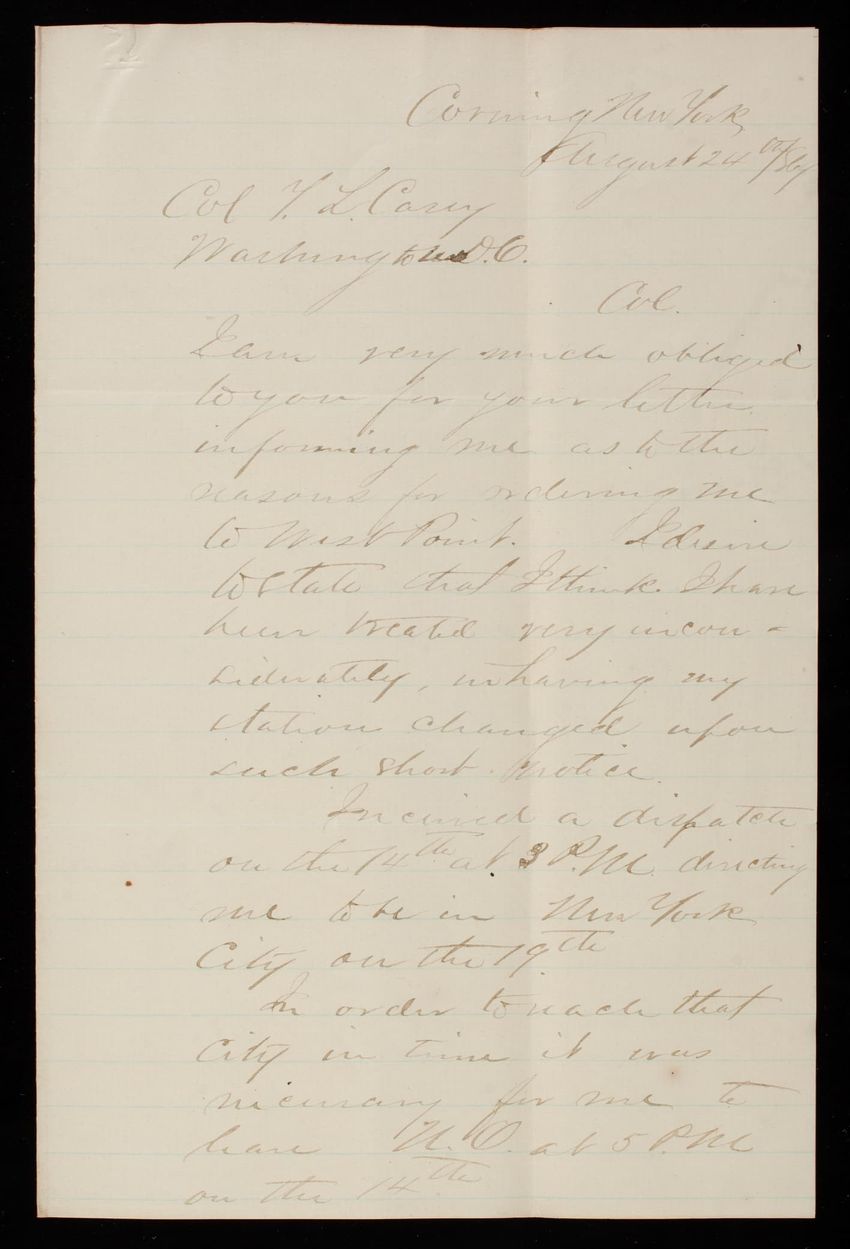 Corning New York
August 24th/84
Col T. L. Casey
Washington D.C.
Col.
I am very much obliged
to you for your letter
informing me as to the
reasons for ordering me
to West Point. I desire
to state that I think I have
been treated very incon-
siderately, in having my
station changed upon
such short notice.
I received a dispatch
on the 14th at 3 P.M. directing
me to be in New York
City on the 19th
In order to reach that
City in time it was
necessary for me to
leave N.O. at 5 P.M
on the 14th